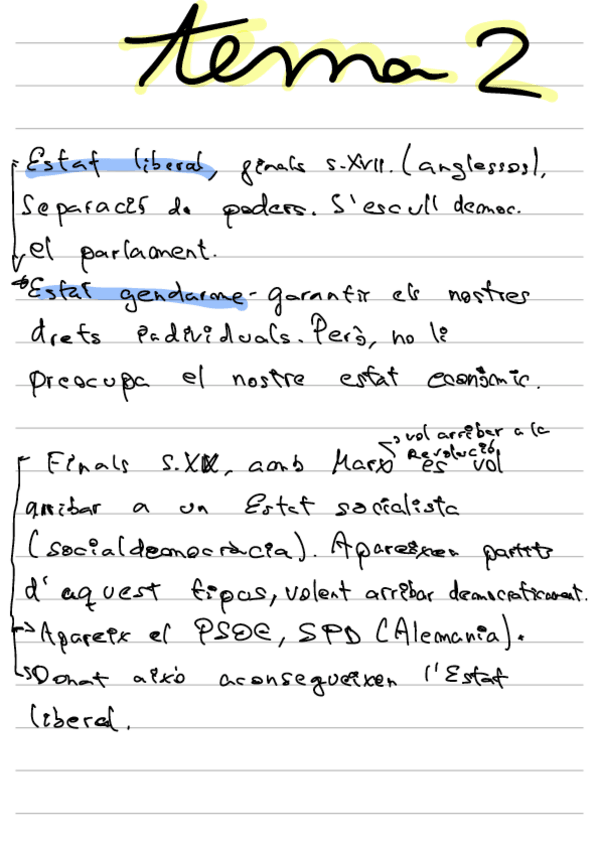 tema 2
Estat liberal, finals s.XVII. (anglessos).
Separació de poders. S'escull democ.
el parlament.
Estat gendarme - garantir els nostres
drets individuals. Però, no li
preocupa el nostre estat econòmic.
→ vol arribar a la
Revolució
Finals s.XIX, amb Marx es vol
arribar a un Estat socialista
(socialdemocràcia). Apareixen partits
d'aquest tipus, volent arribar democràticament.
→ Apareix el PSOE, SPD (Alemania).
→ Donat això aconsegueixen l'Estat
liberal.